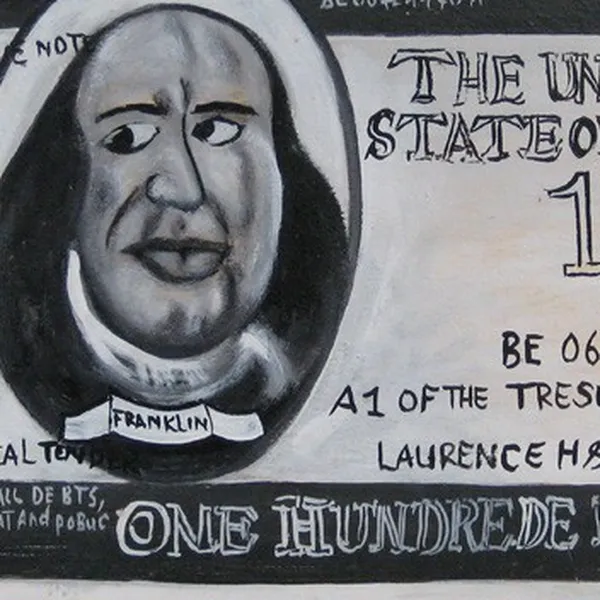 C NOTE
THE UN
STATE O
1
BE 06
A1 OF THE TRES
LAURENCE H
FRANKLIN
AL TONDER
ALL DE BTS,
AT And poBuc
ONE HUNDREDE